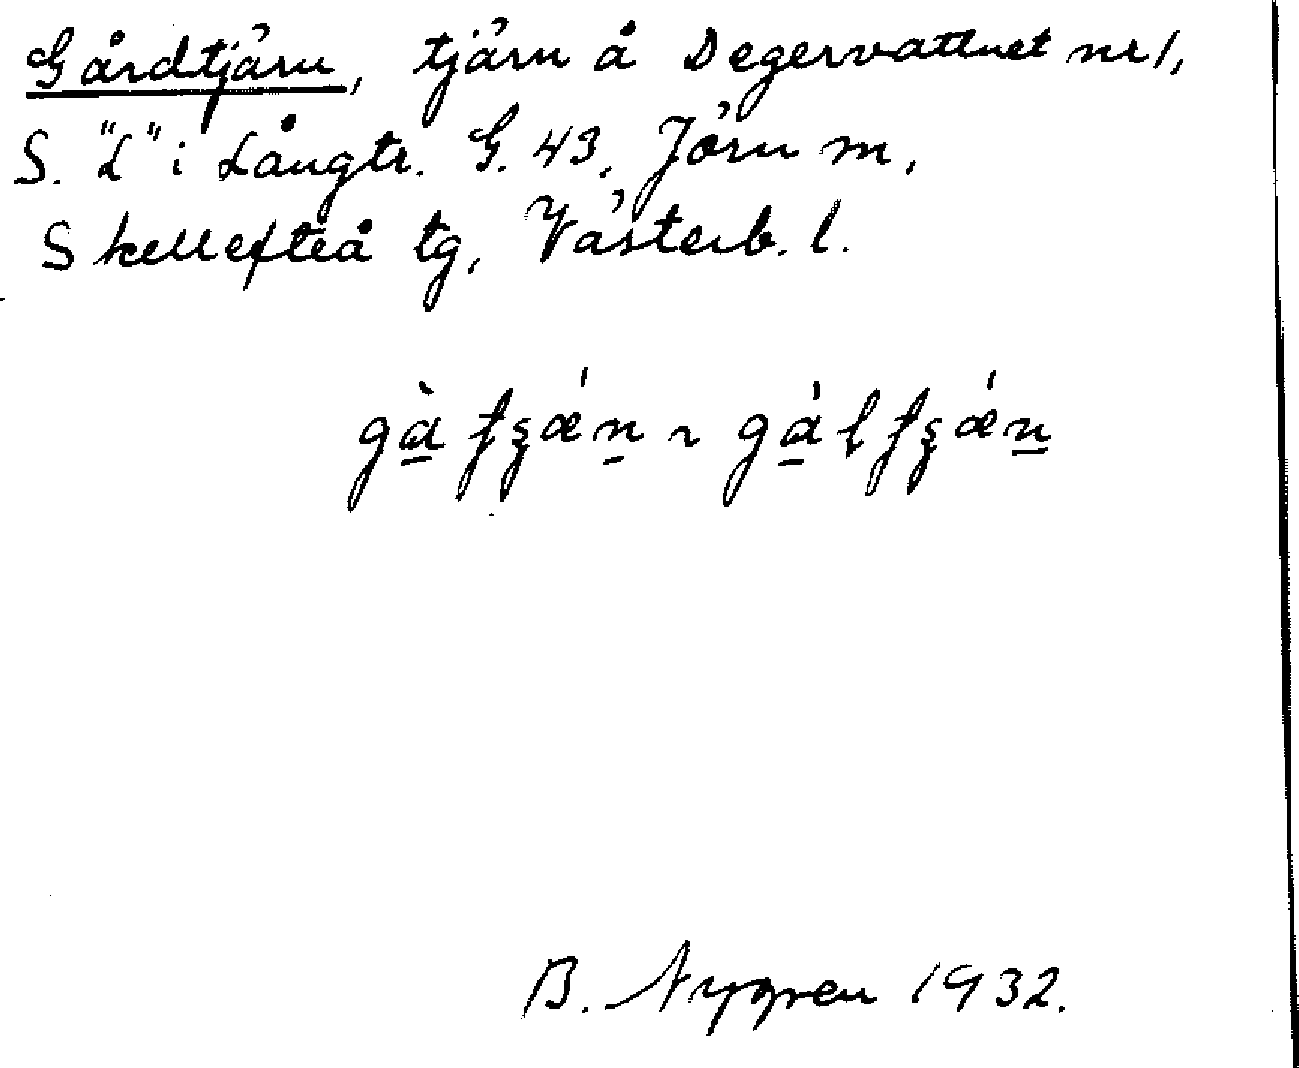 Gårdtjärn, tjärn å Degervattnet nr 1,
S. "L" i Långtr. G. 43, Jörn m,
Skellefteå tg, Västerb. l.
B. Nygren 1932.